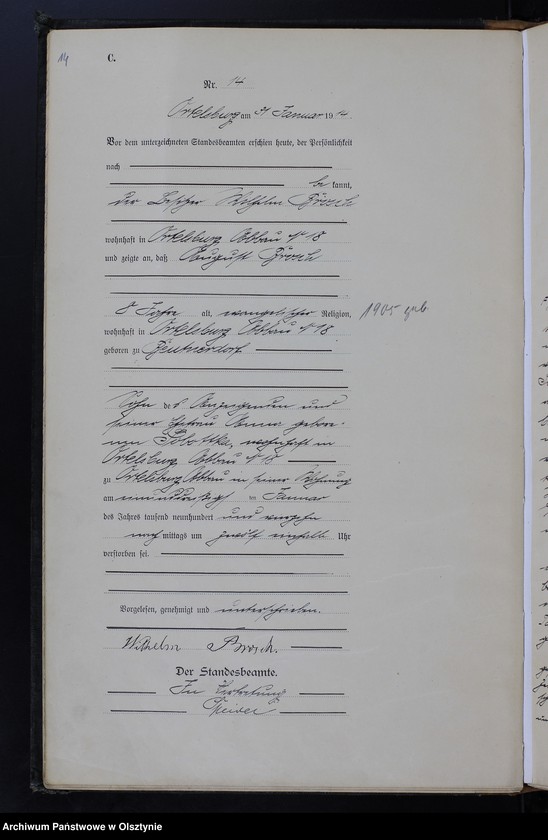 14
C.
Nr. 14
Ortelsburg am 31 Januar 19 14
Vor dem unterzeichneten Standesbeamten erschien heute, der Persönlichkeit
nach
be kannt,
der Besitzer Wilhelm
wohnhaft in Ortelsburg Abbau No 18
und zeigte an, daß August
8 Jahre alt, evangelischer Religion, 1905 geb.
wohnhaft in Ortelsburg Abbau No 18
geboren zu Beutnerdorf
Sohn des Anzeigenden und
seiner Ehefrau Anna gebore-
nen Sobottka, wohnhaft in
Ortelsburg Abbau No 18
zu Ortelsburg Abbau in seiner Wohnung
am einunddreißigsten Januar
des Jahres tausend neunhundert und vierzehn
nach mittags um zwölf einhalb Uhr
verstorben sei.
Vorgelesen, genehmigt und unterschrieben.
Wilhelm
Der Standesbeamte.
In Vertretung
Archiwum Państwowe w Olsztynie